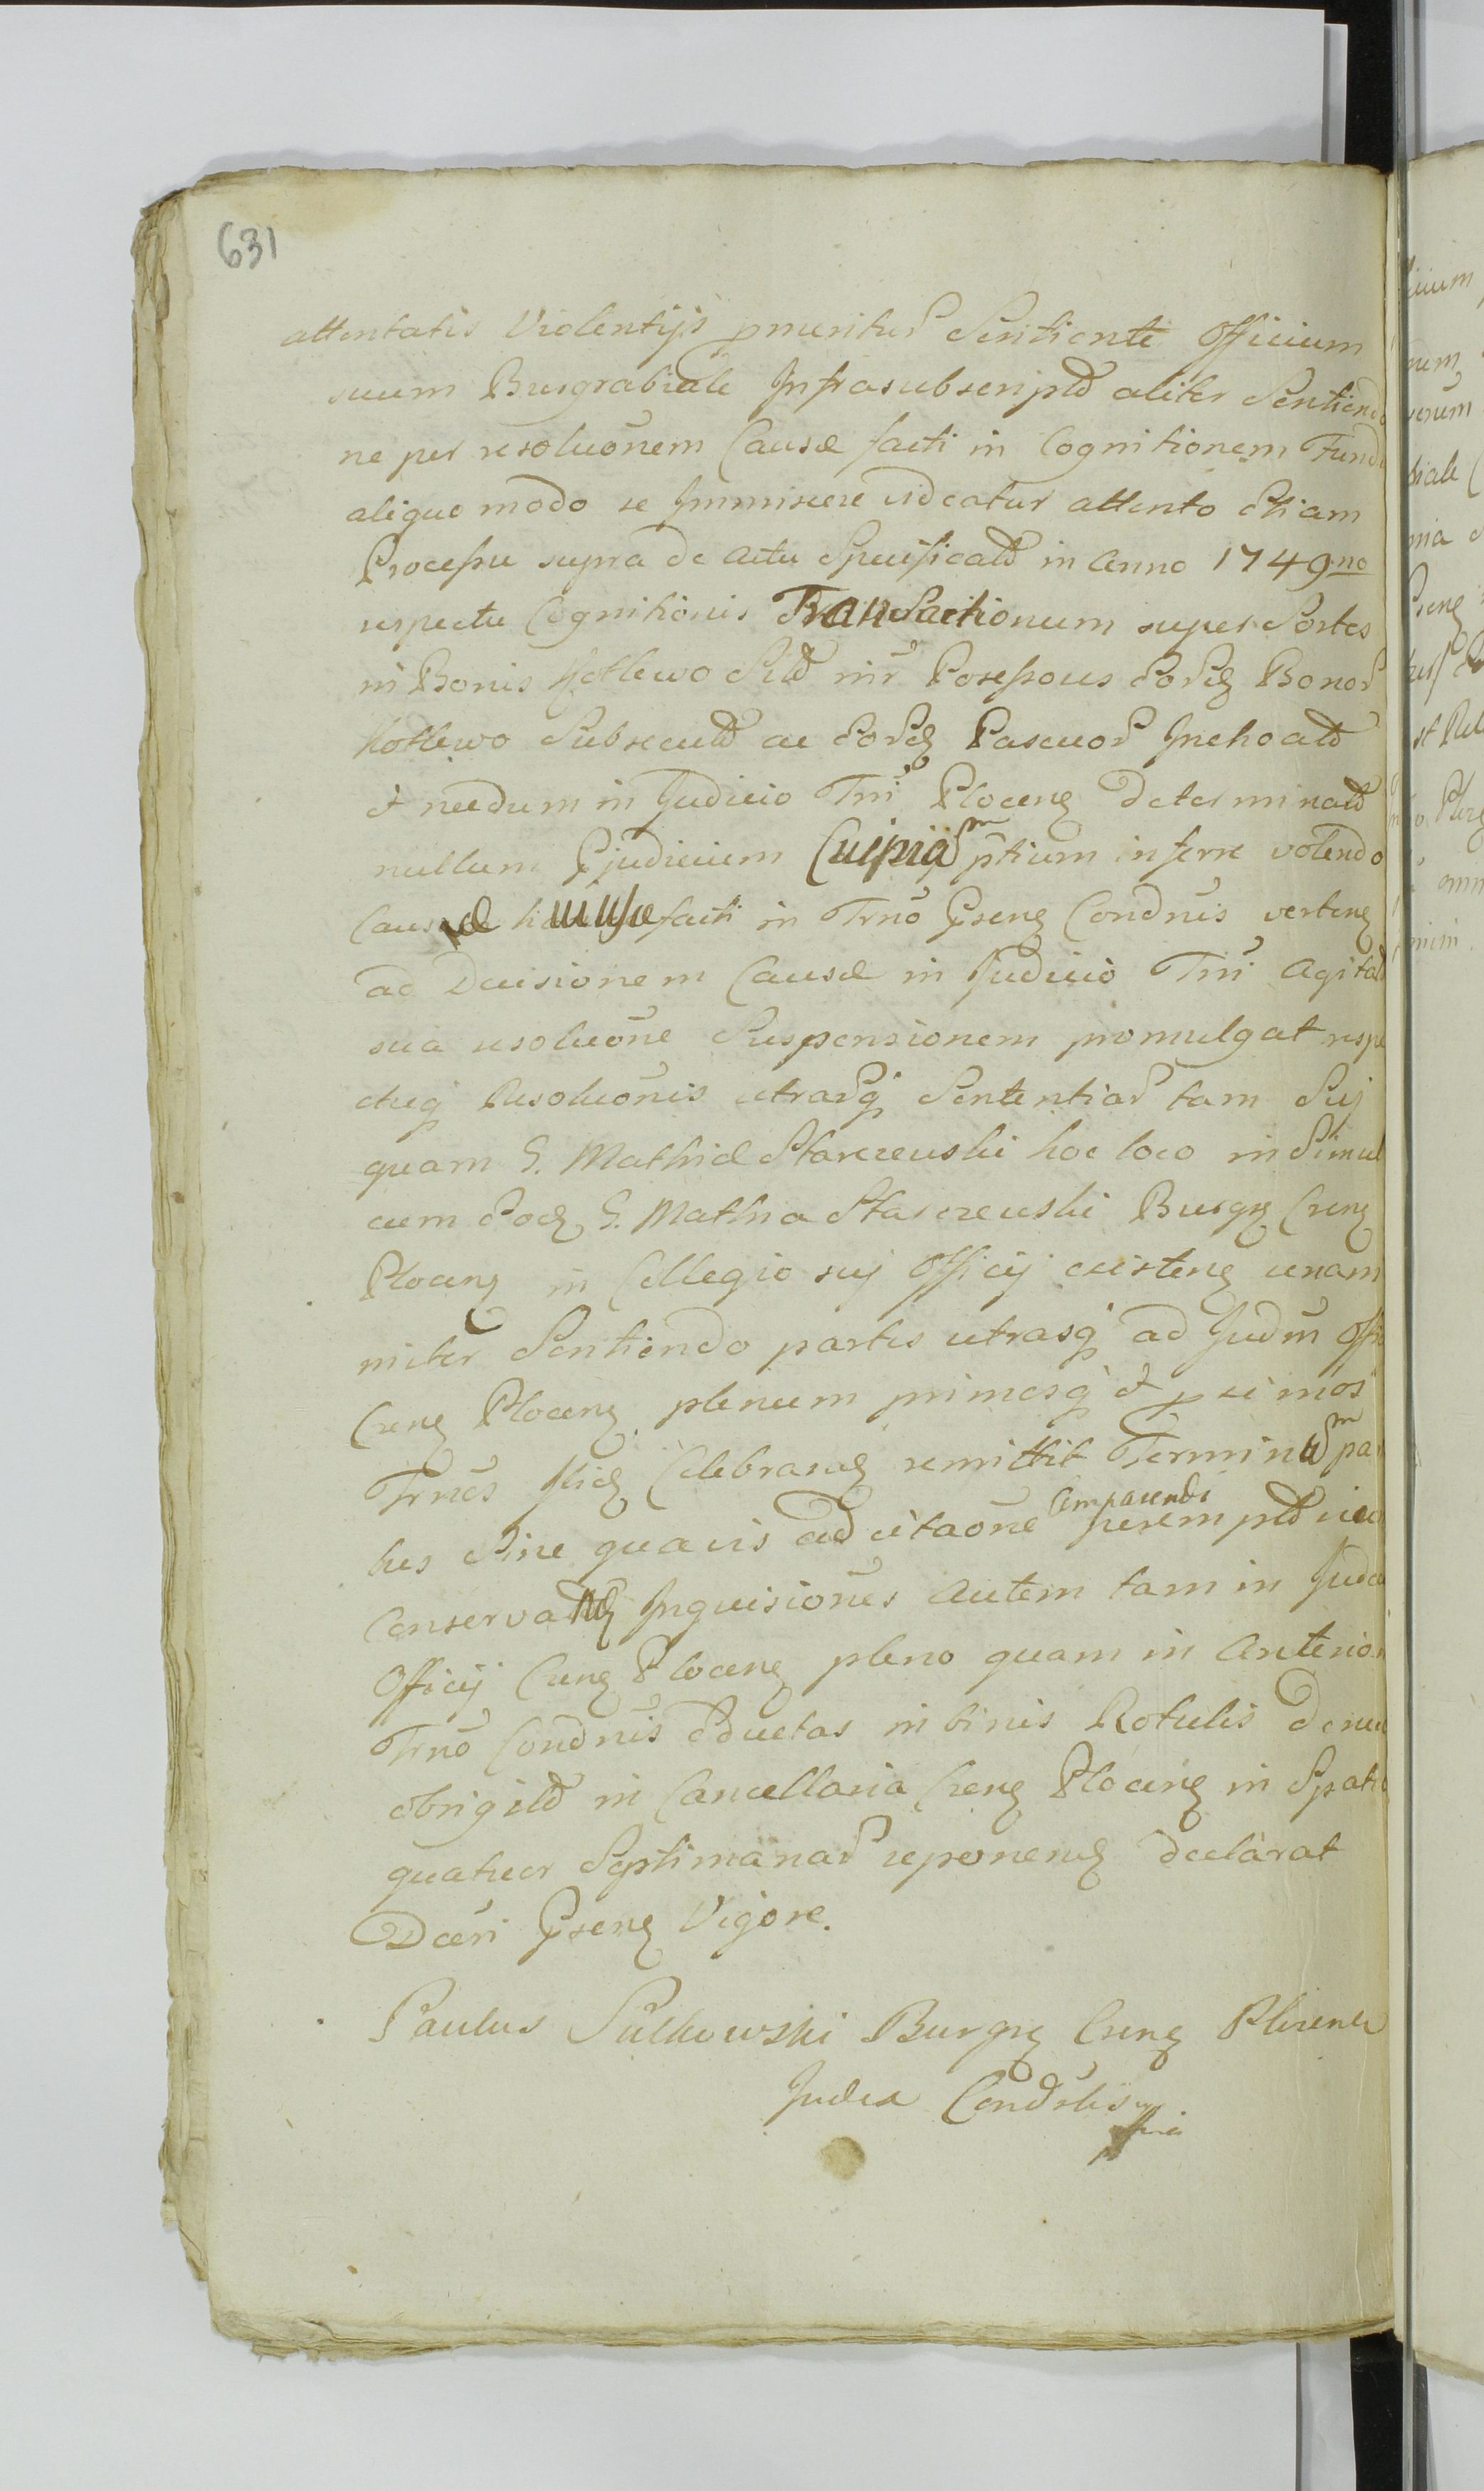 631
attentatis Violentijs pmeritur Sentiente Officium
suum Burgrabiale Infrasubscriptd aliter Sentiend
ne per resolucōnem Causæ facti in Cognitionem Fundi
aliquo modo se Immiscere videatur attento etiam
Processu supra de actu Specificatd in Anno 1749no
respectu Cognitionis Transactionum super Sortes
in Bonis Kotlewo Sitd intr Possessores eord Bonor
Kotlewo Subsecutd ac eord Pascuor Inchoatd
et necdum in Judicio Tri Plocen determinatd
nullum Pjudicium Cuipiam ptium inferre volendo
Causæ facti in Trnō Psen Condnis verten
ad Decisionem Causæ in Judicio Tri Agitatd
sua resolucōne Suspensionem promulgat respe
ctuq Resolucōnis utrarq Sententiar tam Sui
quam G. Mathiæ Starczewski hoc loco in Simul
cum eod G. Mathia Starczewski Burgr Cren
Plocen in Collegio sui Officij existen unani
miter Sentiendo partes utrasq ad Judm Offi
Cren Plocen plenum primosq et pximos
Trnōs Judic Celebrand remittit Terminum par
bus Sine quavis adcitaōne Comparendi peremptd
Conservand Inquisiōnes autem tam in Judo
Officij Cren Plocen pleno quam in Anterior
Trnō Condnis eductas in binis Rotulis
obsigiltd in Cancellaria Cren Plocen in Spatio
quatuor Septimanar reponend declarat
Dcti Psen Vigore.
Paulus Sulkowski Burgr Cren Plocens
Judex Condnlis mpia